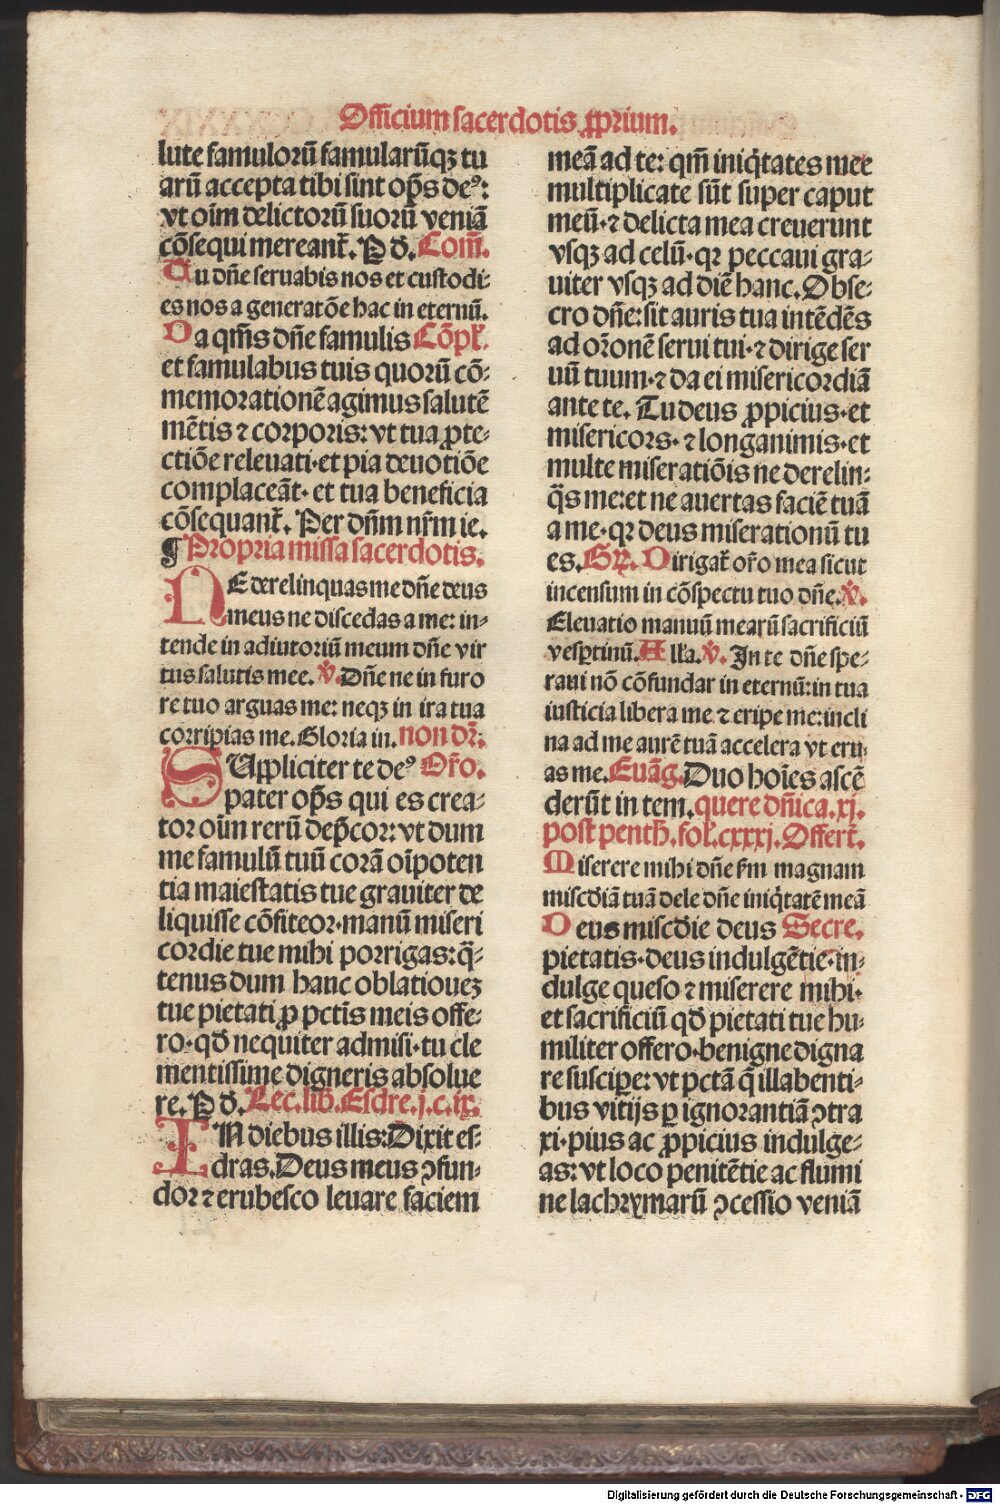 Officium sacerdotis ꝓprium.
lute famulorū famularūqꝫ tu
arū accepta tibi sint op̄s deꝰ:
vt oīm delictorū suorū veniā
cōsequi mereant̄. P d̄. Com̄.
Tu dn̄e seruabis nos et custodi⸗
es nos a generatōe hac in eternū.
Da qm̄s dn̄e famulis Cōpl̄.
et famulabus tuis quorū cō⸗
memorationē agimus salutē
mētis ⁊ corporis: vt tua ꝓte⸗
ctiōe releuati·et pia deuotiōe
complaceāt· et tua beneficia
cōsequant̄. Per dn̄m nr̄m ie.
¶ Propria missa sacerdotis.
NE derelinquas me dn̄e deus
meus ne discedas a me: in⸗
tende in adiutoriū meum dn̄e vir
tus salutis mee. v̄. Dn̄e ne in furo
re tuo arguas me: neqꝫ in ira tua
corripias me. Gloria in. non dr̄:
SUppliciter te deꝰ Or̄o.
pater op̄s qui es crea⸗
tor oīm rerū dep̄cor: vt dum
me famulū tuū corā oīpoten
tia maiestatis tue grauiter de
liquisse cōfiteor·manū miseri
cordie tue mihi porrigas: q̄⸗
tenus dum hanc oblationeꝫ
tue pietati ꝓ pctīs meis offe⸗
ro·qd̄ nequiter admisi·tu cle
mentissime digneris absolue
re. P d̄. Lec. lib. Esdre. j. c. ix.
IN diebus illis: Dixit es⸗
dras. Deus meus ꝯfun⸗
dor ⁊ erubesco leuare faciem
meā ad te: qm̄ iniq̇tates mee
multiplicate sūt super caput
meū·⁊ delicta mea creuerunt
vsqꝫ ad celū·qꝛ peccaui gra⸗
uiter vsqꝫ ad diē hanc. Obse⸗
cro dn̄e: sit auris tua intēdēs
ad or̄onē serui tui·⁊ dirige ser
uū tuum·⁊ da ei misericordiā
ante te. Tu deus ꝓpicius·et
misericors·⁊ longanimis·et
multe miseratiōis ne derelin⸗
q̄s me: et ne auertas faciē tuā
a me·qꝛ deus miserationū tu
es. Gr̄. Dirigat̄ or̄o mea sicut
incensum in cōspectu tuo dn̄e. v̄.
Eleuatio manuū mearū sacrificiū
vesꝑtinū. All̄a. v̄. In te dn̄e spe⸗
raui nō cōfundar in eternū: in tua
iusticia libera me ⁊ eripe me: incli
na ad me aurē tuā accelera vt eru⸗
as me. Euāg. Duo hoīes ascē
derūt in tem. quere dn̄ica. xj.
post penth. fol̄. cxxxj. Offert̄.
Miserere mihi dn̄e ẜm magnam
miscd̄iā tuā dele dn̄e iniq̇tatē meā
Deus miscd̄ie deus Secre.
pietatis·deus indulgētie·in⸗
dulge queso ⁊ miserere mihi·
et sacrificiū qd̄ pietati tue hu⸗
militer offero·benigne digna
re susciꝑe: vt pctā q̄ illabenti⸗
bus vitijs ꝑ ignorantiā ꝯtra
xi·pius ac ꝓpicius indulge⸗
as: vt loco penitētie ac flumi
ne lachrymarū ꝯcessio veniā
Digitalisierung gefördert durch die Deutsche Forschungsgemeinschaft - DFG